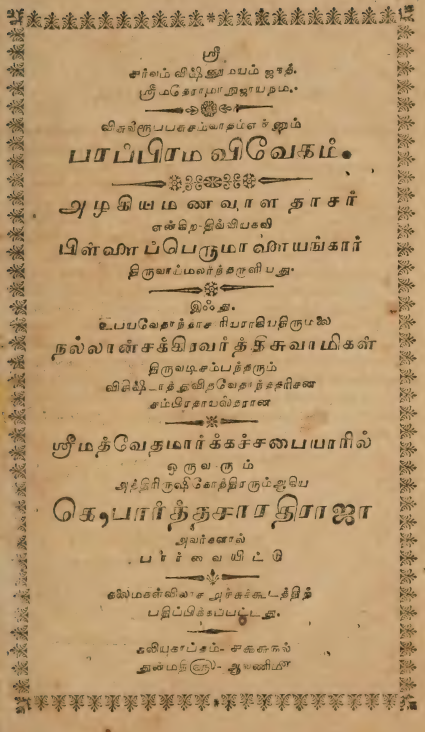 ஸ்ரீ
சர்வம் விஷ்ணுமயம் ஜகத்.
ஸ்ரீமதேராமாநுஜாயநம.
என்னும்
பரப்பிரம விவேகம்.
அழகியமணவாள தாசர்
என்கிற-திவ்வியகவி
பிள்ளைப்பெருமாளையங்கார்
திருவாய்மலர்ந்தருளியது.
இஃது.
உபயவேதாந்தாசாரியராகியதிருமலை
நல்லான்சக்கிரவர்த்திசுவாமிகள்
திருவடிசம்பந்தரும்
விசிஷ்டாத்துவிதவேதாந்ததரிசன
சம்பிரதாயஸ்தரான
ஸ்ரீமத்வேதமார்க்கச்சபையாரில்
ஒருவரும்
அத்திரிருஷிகோத்திரரும்ஆகிய
கெ-பார்த்தசாரதிராஜா
அவர்களால்
பார்வையிட்டு
கலைமகள்விலாச அச்சுக்கூடத்திற்
பதிப்பிக்கப்பட்டது.
கலியுகாப்தம்-
துன்மதி௵- ஆவணிமீ